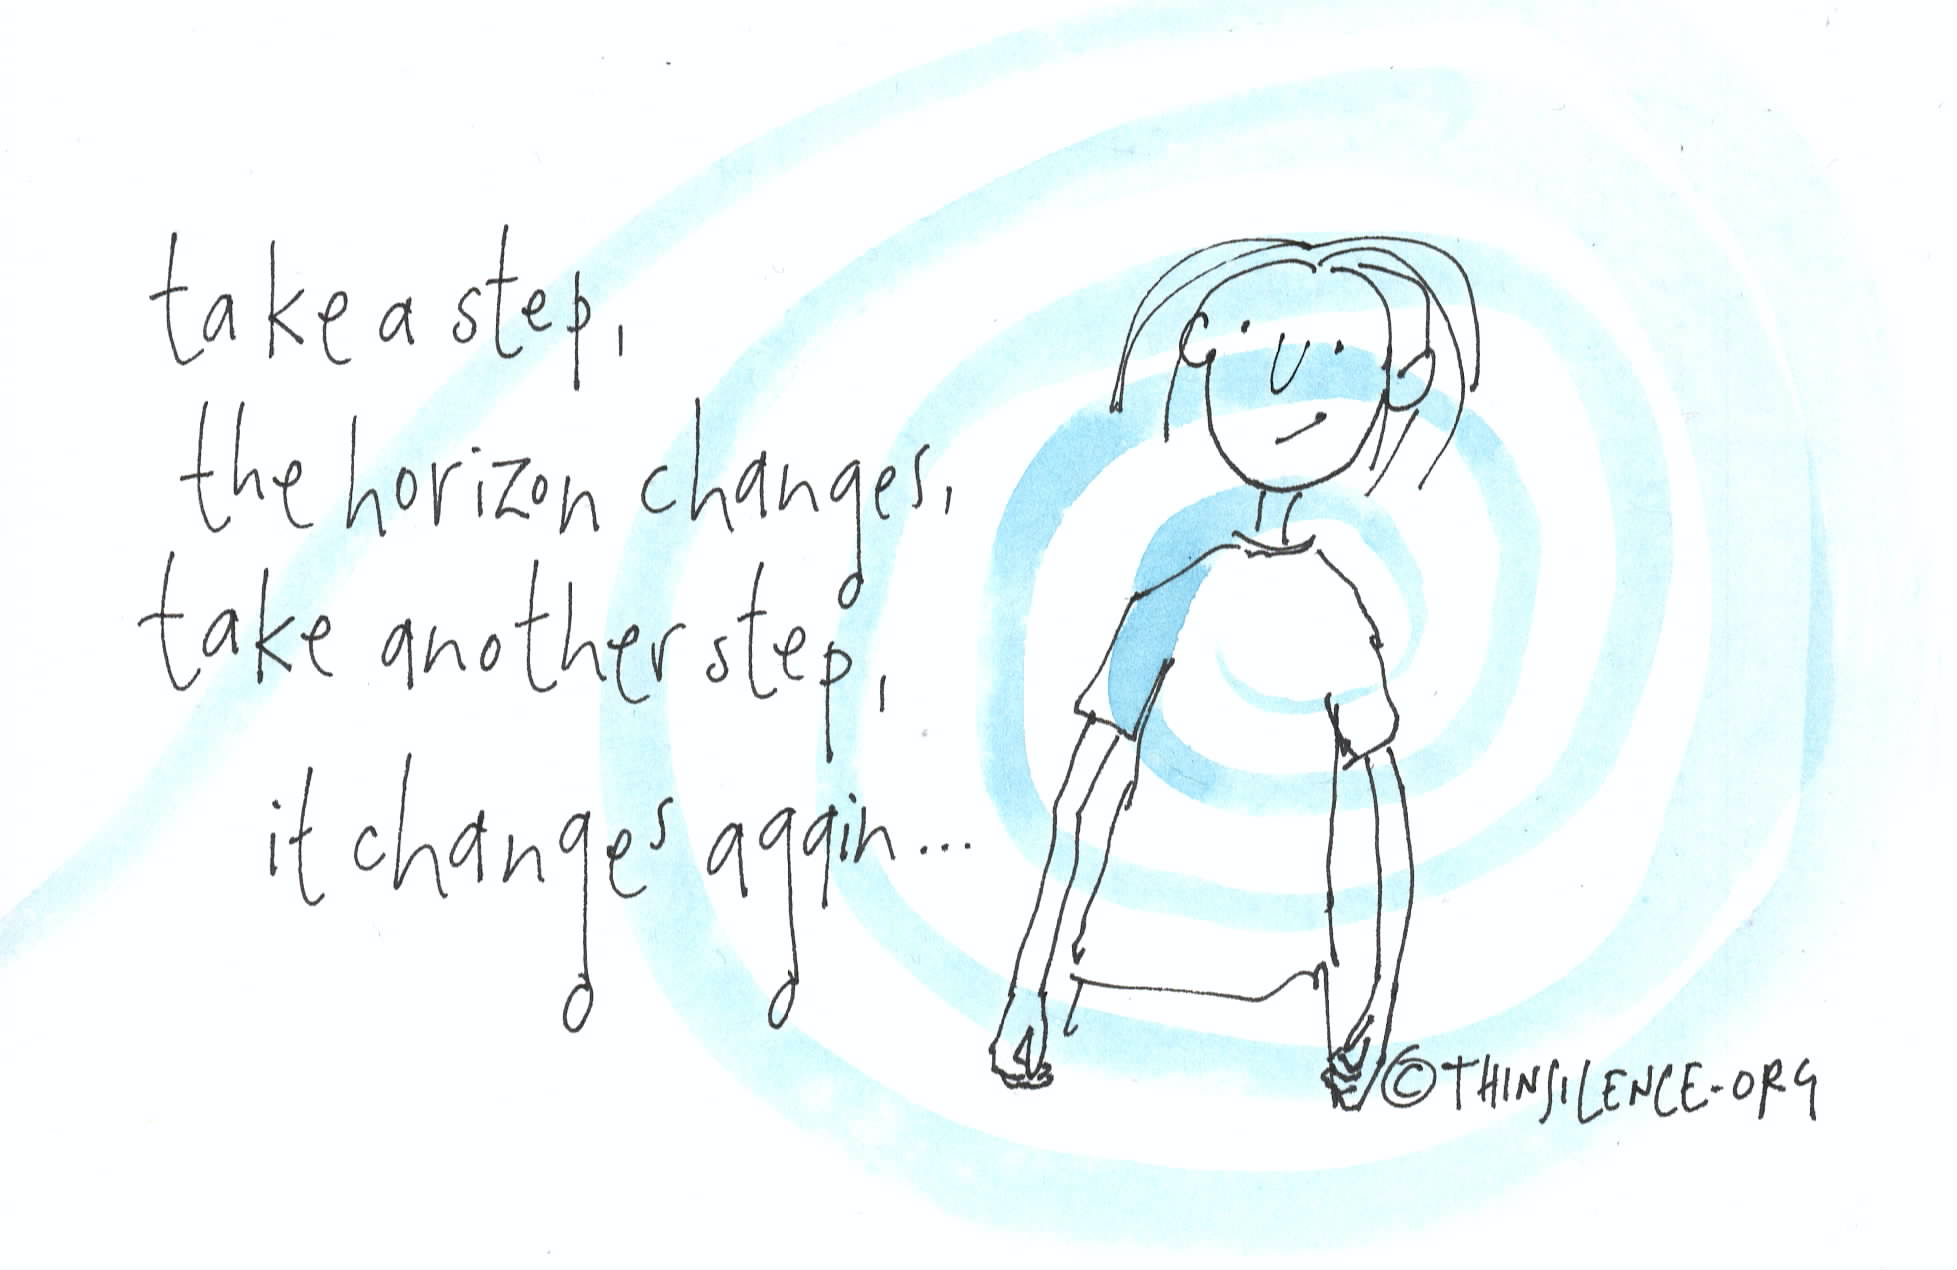 take a step,
the horizon changes,
take another step,
it changes again...
©THINSILENCE-ORG